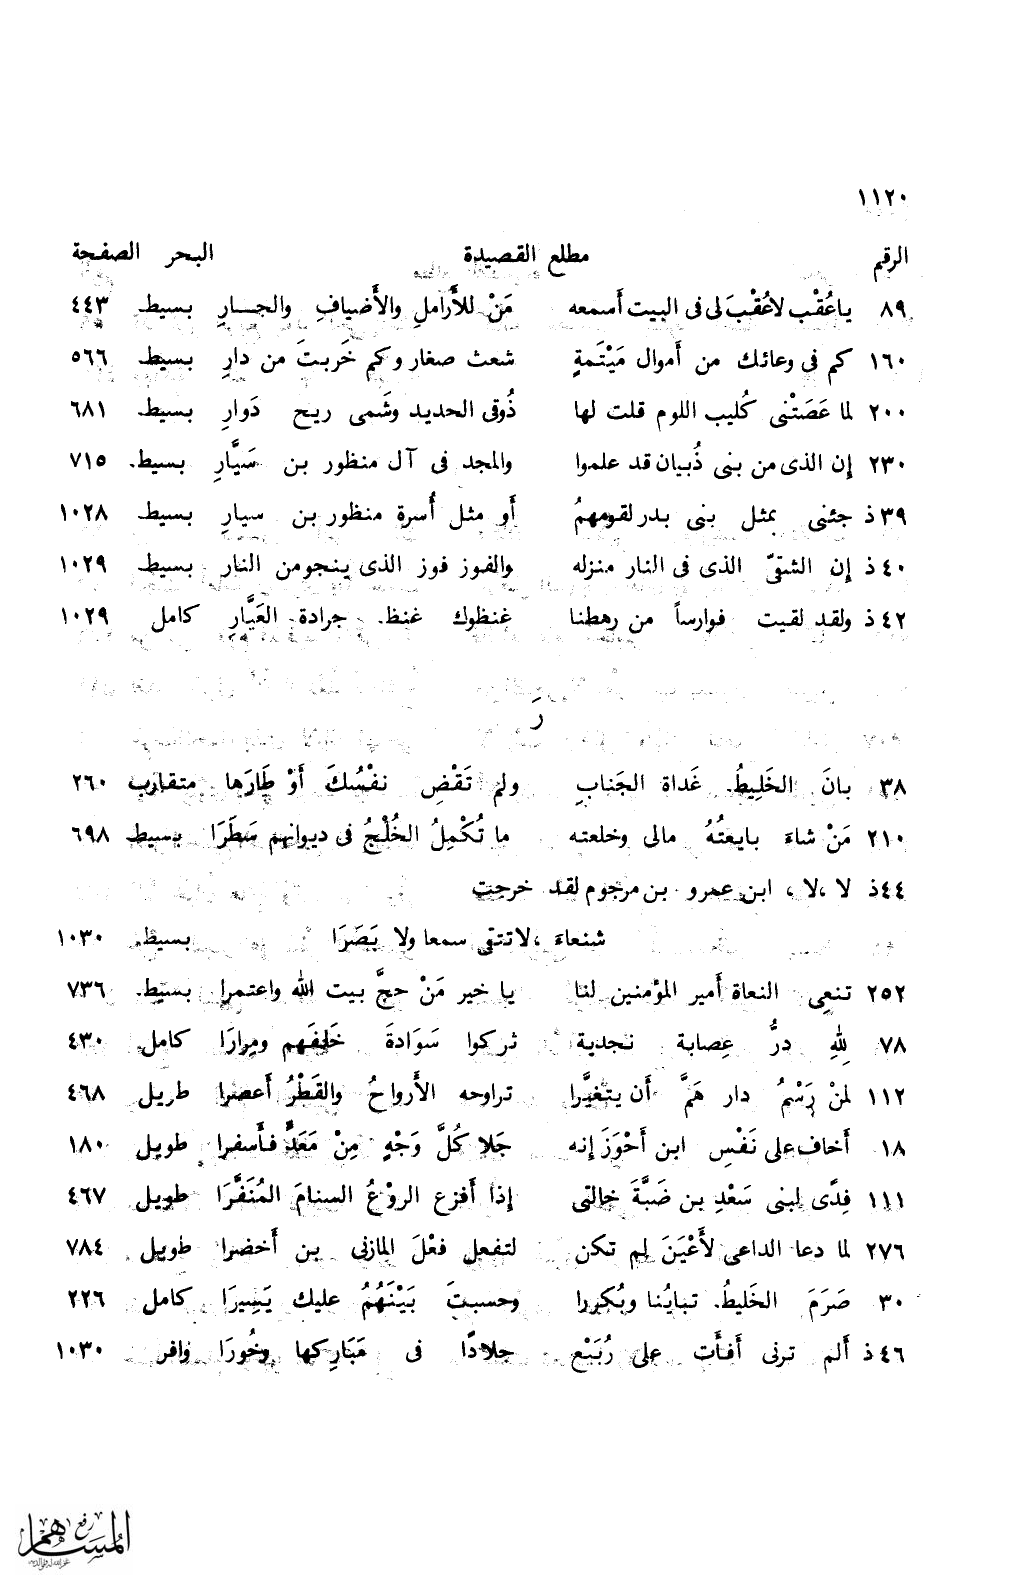 ١١٢٠
الرقم مطلع القصيدة البحر الصفحة
٨٩ ياعُقْب لاعُقْبَ لى فى البيت أسمعه مَنْ للأَراملِ والأَضيافِ والجارِ بسيط ٤٤٣
١٦٠ كم فى وعائك من أَموال مَيْتَمةٍ شعث صغار وكم خَربتَ من دارِ بسيط ٥٦٦
٢٠٠ لما عَصَتْنى كُليب اللوم قلت لها ذُوقى الحديد وشَمى ريح دَوارِ بسيط. ٦٨١
٢٣٠ إن الذى من بنى ذُبيان قد علموا والمجد فى آل منظور بن سَيَّارِ بسيط. ٧١٥
٣٩ ذ جئنى بمثل بنى بدر لقومهمُ أَو مثل أُسرةِ منظور بن سيارِ بسيط ١٠٢٨
٤٠ ذ إن الشقىّ الذى فى النار منزله والفوز فوز الذى ينجومن النار بسيط ١٠٢٩
٤٢ ذ ولقد لقيت فوارساً من رهطنا غنظوك غنظ. جرادة العَيَّارِ كامل ١٠٢٩
رَ
٣٨ بانَ الخَلِيطُ. غَداة الجَنابِ ولم تَقْضِ نفْسُكَ أَوْ طَارَها متقارب ٢٦٠
٢١٠ مَنْ شاءَ بايعتُهُ مالى وخلعته ما تُكْمِلُ الخُلْجُ فى ديوانهم سَطَرَا بسيط ٦٩٨
٤٤ذ لا ،لا ، ابن عمرو بن مرجوم لقد خرجت
شنعاءَ ،لاتتقى سمعا ولا بَصَرَا بسيط. ١٠٣٠
٢٥٢ تنعى النعاة أَمير المؤمنين لنا يا خير مَنْ حجَّ بيت الله واعتمرا بسيط. ٧٣٦
٧٨ لِلهِ درُّ عِصابة نجدية تركوا سَوَادةَ خَلفَهم ومِرارَا كامل ٤٣٠
١١٢ لمنْ رَسْمُ دار هَمَّ أَن يتغيَّرا تراوحه الأَرواحُ والقَطْرُ أَعصرا طريل ٤٦٨
١٨ أَخاف على نَفْسِ ابن أَحْوَزَ إنه جَلا كُلَّ وَجْهٍ مِنْ مَعَدٍّ فأَسفرا طويل ١٨٠
١١١ فِدًى لبنى سَعْدِ بن ضَبَّةَ خالتى إذا أَفزع الروْعُ السنامَ المُنَفَّرَا طويل ٤٦٧
٢٧٦ لما دعا الداعى لأَعْيَنَ لم تكن لتفعل فعْلَ المازنى بن أَخضرا طويل ٧٨٤
٣٠ صَرَمَ الخَليطُ. تبايُنا وبُكورا وحسبتَ بَيْنَهُمُ عليك يَسِيرَا كامل ٢٢٦
٤٦ ذ أَلم ترنى أَفأْت على رُبَيْع جلادًا فى مَبَارِكها وخُورَا وافر ١٠٣٠
رفع
المساهم